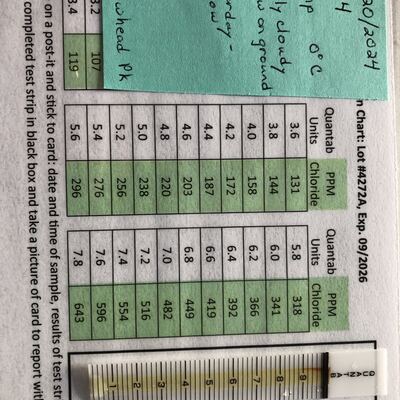 20/2024
4
0°C
cloudy
on ground
ow
head Pk
Chart: Lot #4272A, Exp. 09/2026
Quantab Units PPM Chloride Quantab Units PPM Chloride
3.6 131 5.8 318
3.8 144 6.0 341
4.0 158 6.2 366
4.2 172 6.4 392
4.4 187 6.6 419
4.6 203 6.8 449
4.8 220 7.0 482
5.0 238 7.2 516
5.2 256 7.4 554
3.2 107 5.4 276 7.6 596
3.4 119 5.6 296 7.8 643
QUANTAB
9
8
7
6
5
4
3
2
1
on a post-it and stick to card: date and time of sample, results of test
completed test strip in black box and take a picture of card to report